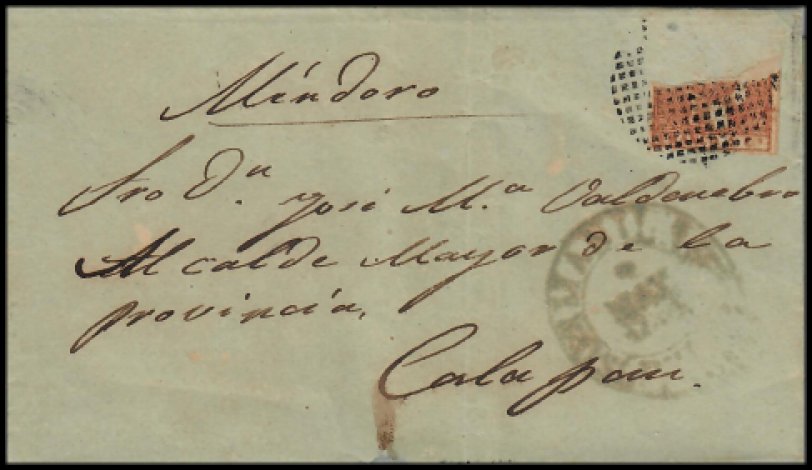 Mindoro
Sro Dn. José M.a Valdenebro
Alcalde Mayor de la
provincia,
Calapan.
MANILA